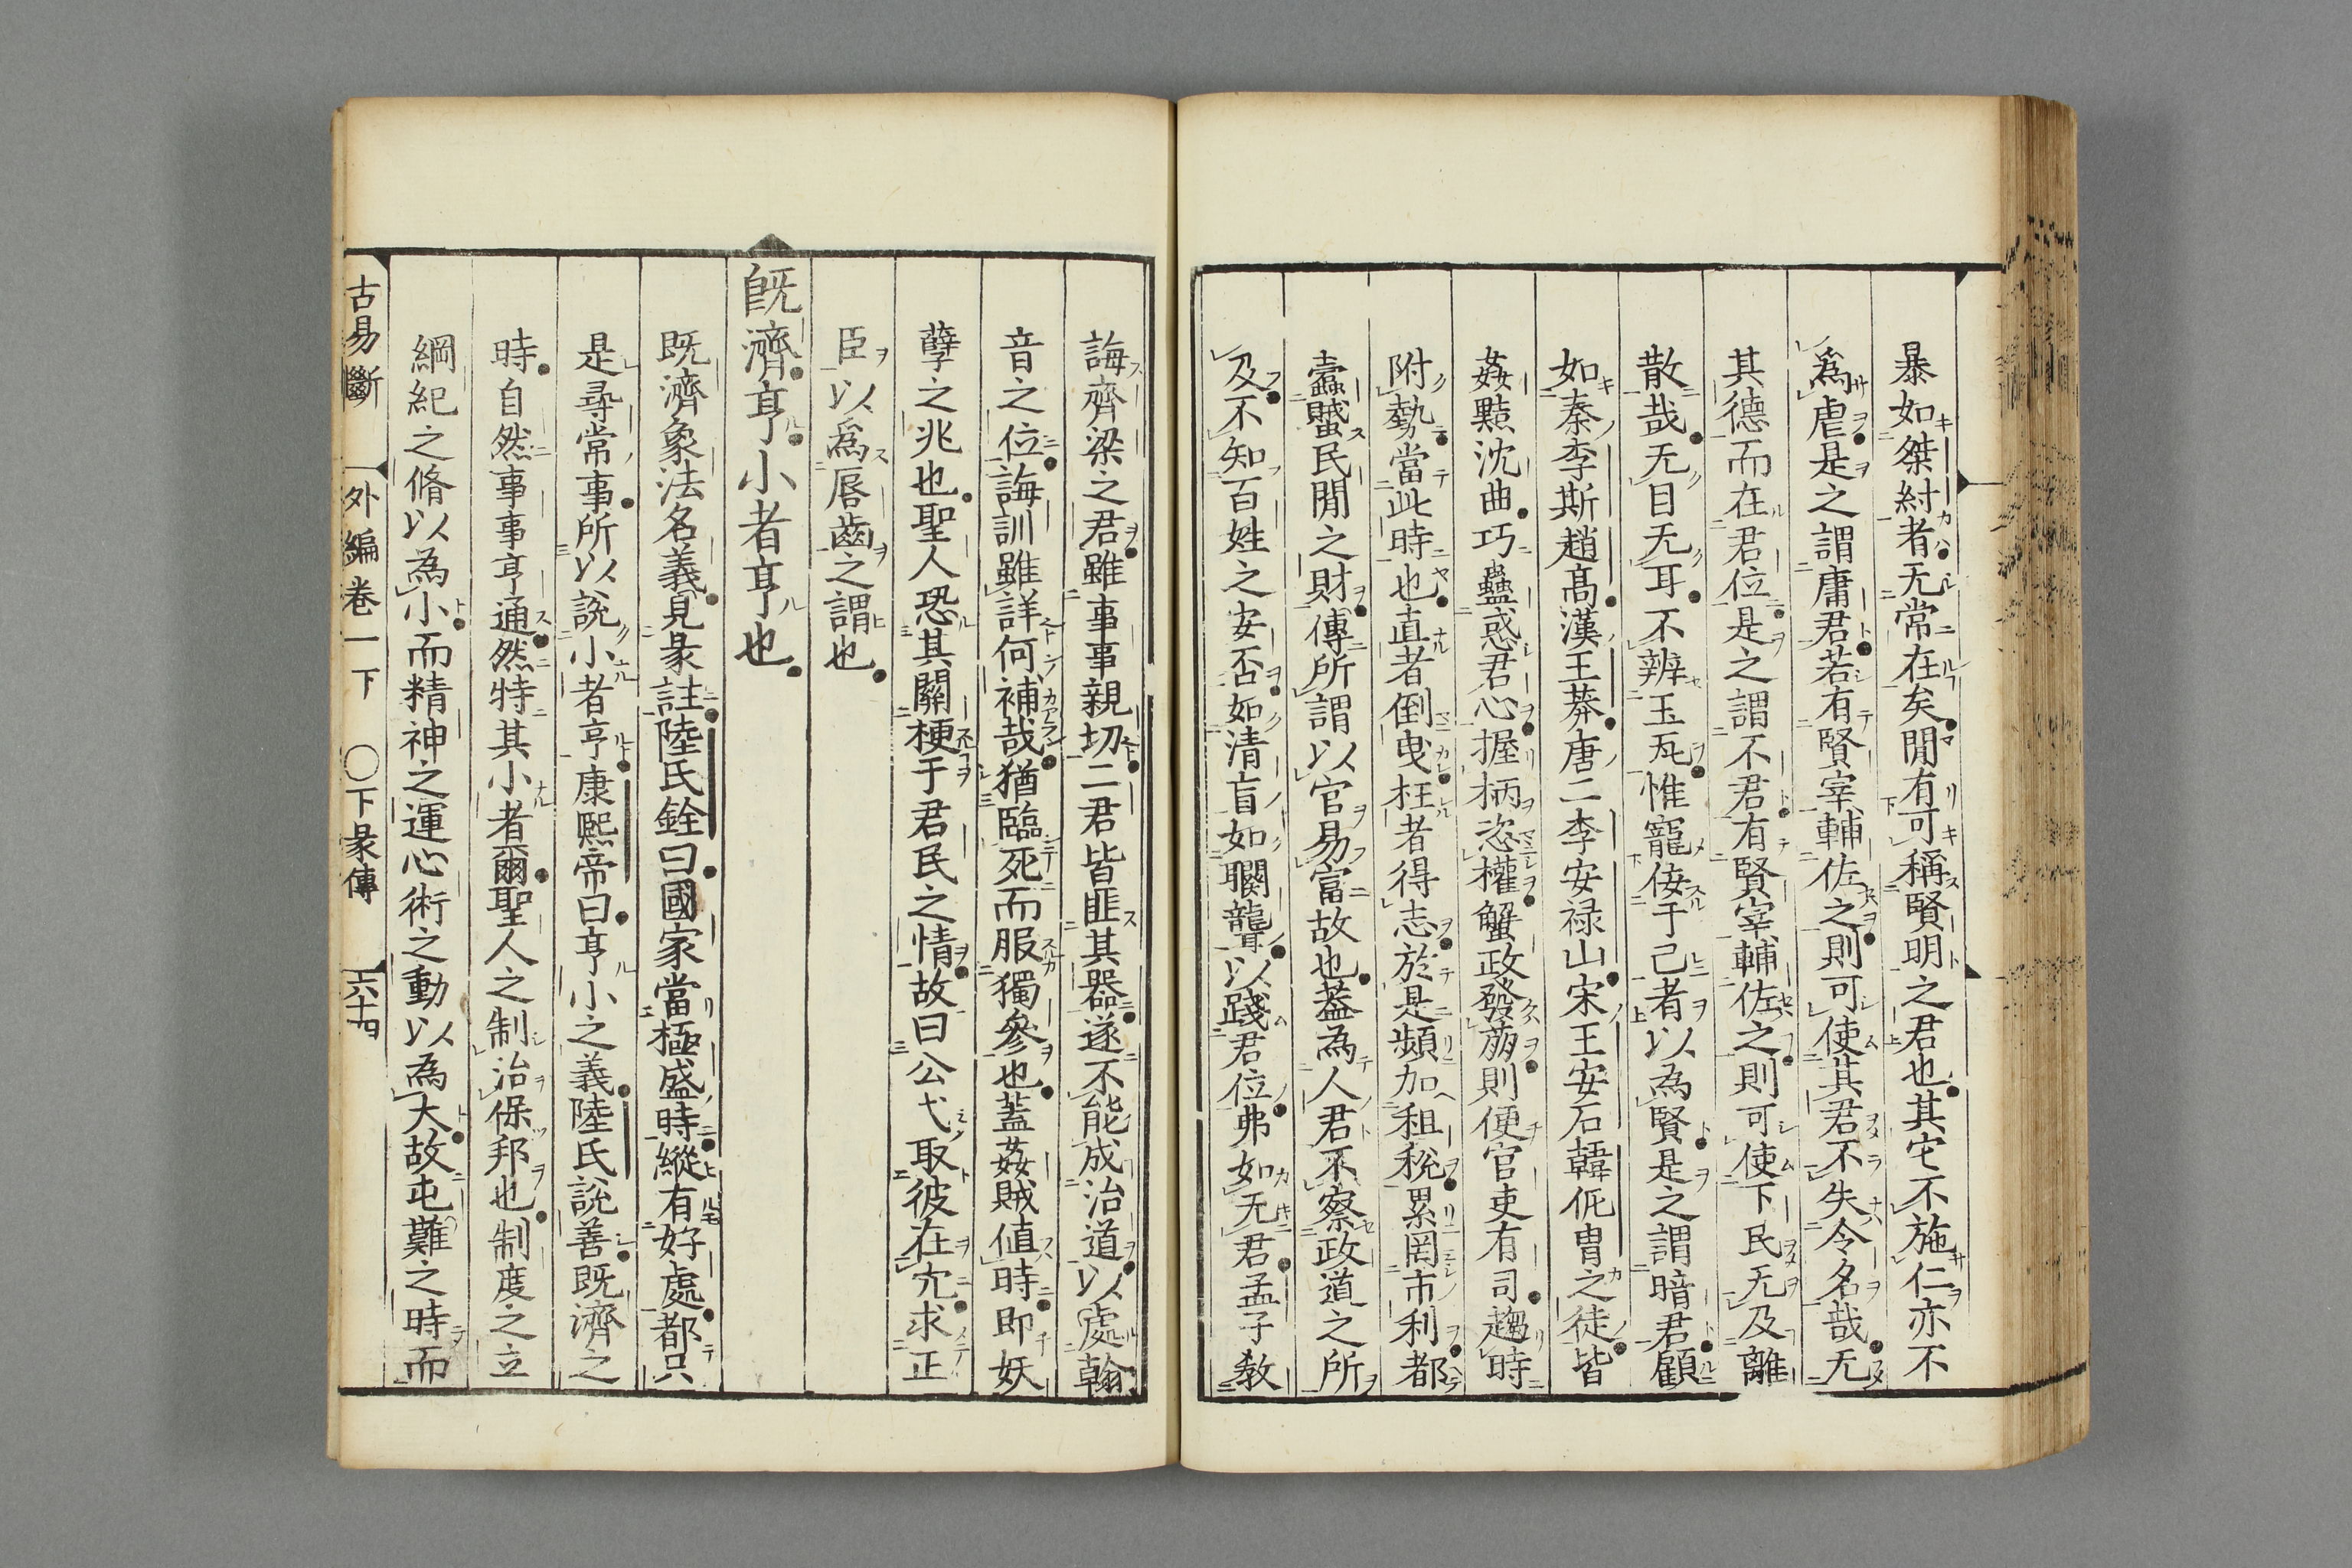 暴如桀紂者无常在矣閒有可稱賢明之君也其宅不施仁亦不
爲虐是之謂庸君若有賢宰輔佐之則可使其君不失令名哉无
其德而在君位是之謂不君有賢宰輔佐之則可使下民无及離
散哉无目无耳不辨玉瓦惟寵倿于己者以為賢是之謂暗君顧
如秦李斯趙髙漢王莽唐二李安禄山宋王安石韓侂冑之徒皆
姦黠沈曲巧蠱惑君心握柄恣權蟹政發萠則便官吏有司趨時
附勢當此時也直者倒曳枉者得志於是頻加租税累罔市利都
蠧賊民閒之財傳所謂以官易富故也葢為人君不察政道之所
及不知百姓之安否如清盲如矙聾以踐君位弗如无君孟子教
誨齊梁之君雖事事親切二君皆匪其器遂不能成治道以處翰
音之位誨訓雖詳何補哉猶臨死而服獨參也蓋姦賊值時即妖
孽之兆也聖人恐其關梗于君民之情故曰公弋取彼在穴求正
臣以爲唇齒之謂也
旣濟亨小者亨也
既濟象法名義見彖註陸氏銓曰國家當極盛時縱有好處都只
是尋常事所以說小者亨康熙帝曰亨小之義陸氏說善既濟之
時自然事事亨通然特其小者爾聖人之制治保邦也制度之立
綱紀之脩以為小而精神之運心術之動以為大故屯難之時而
古易斷 外編卷一下 〇下彖傳 六十四